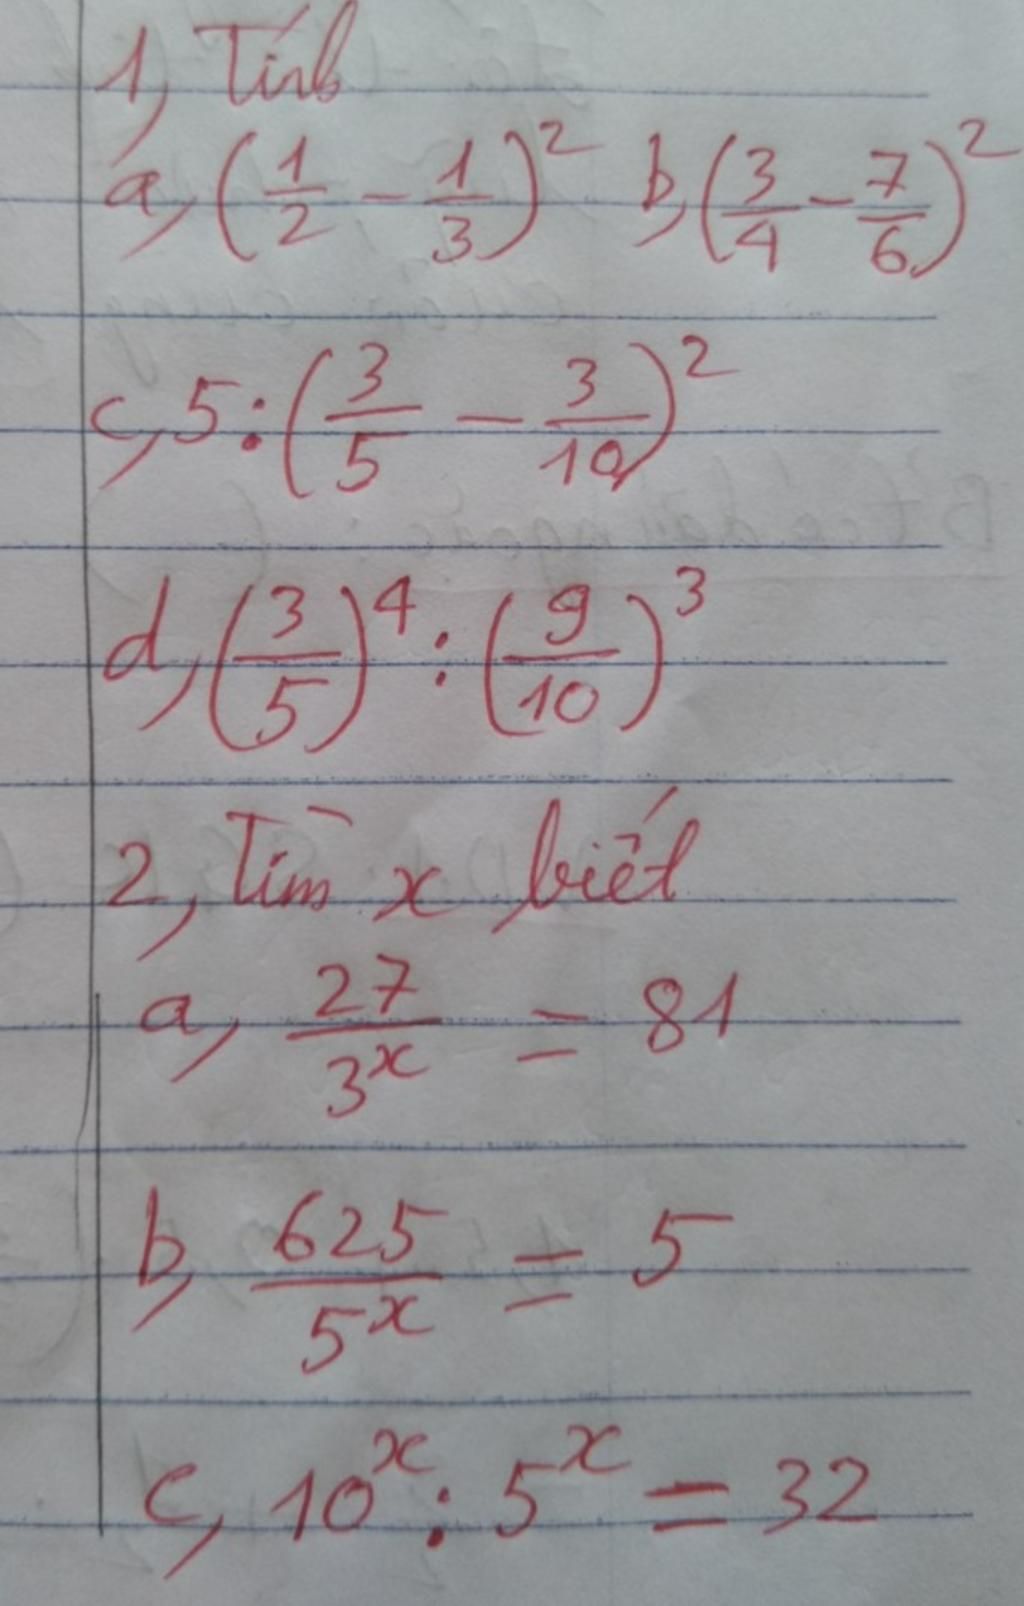 1, Tính
a, (1/2 - 1/3)² b, (3/4 - 7/6)²
c, 5 : (3/5 - 3/10)²
d, (3/5)⁴ : (9/10)³
2, Tìm x, biết
a, 27/3ˣ = 81
b, 625/5ˣ = 5
c, 10ˣ : 5ˣ = 32